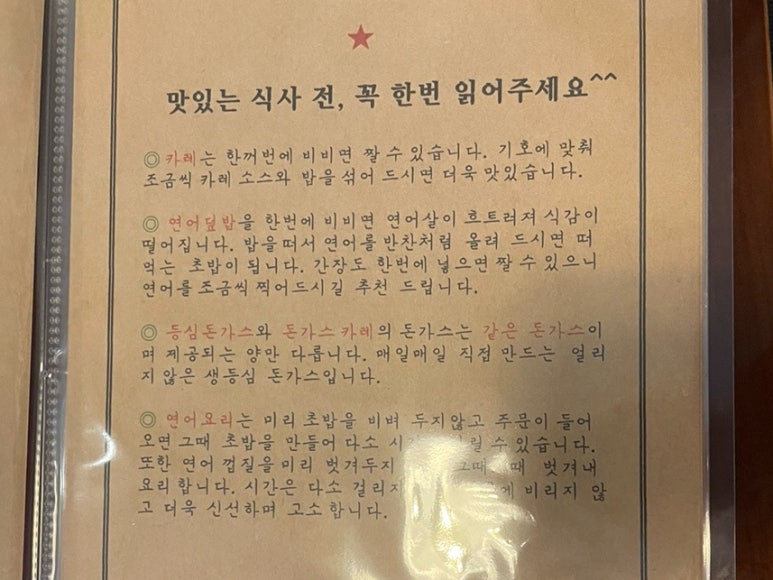 맛있는 식사 전, 꼭 한번 읽어주세요^^
◎ 카레는 한꺼번에 비비면 짤 수 있습니다. 기호에 맞춰
조금씩 카레 소스와 밥을 섞어 드시면 더욱 맛있습니다.
◎ 연어덮밥을 한번에 비비면 연어살이 흐트러져 식감이
떨어집니다. 밥을 떠서 연어를 반찬처럼 올려 드시면 떠
먹는 초밥이 됩니다. 간장도 한번에 넣으면 짤 수 있으니
연어를 조금씩 찍어드시길 추천 드립니다.
◎ 등심돈가스와 돈가스 카레의 돈가스는 같은 돈가스이
며 제공되는 양만 다릅니다. 매일매일 직접 만드는 얼리
지않은 생등심 돈가스입니다.
◎ 연어요리는 미리 초밥을 비벼 두지않고 주문이 들어
오면 그때 초밥을 만들어 다소 수 있습니다.
또한 연어 껍질을 미리 벗겨두지 그때 벗겨내
요리 합니다. 시간은 다소 비리지 않
고 더욱 신선하며 고소합니다.